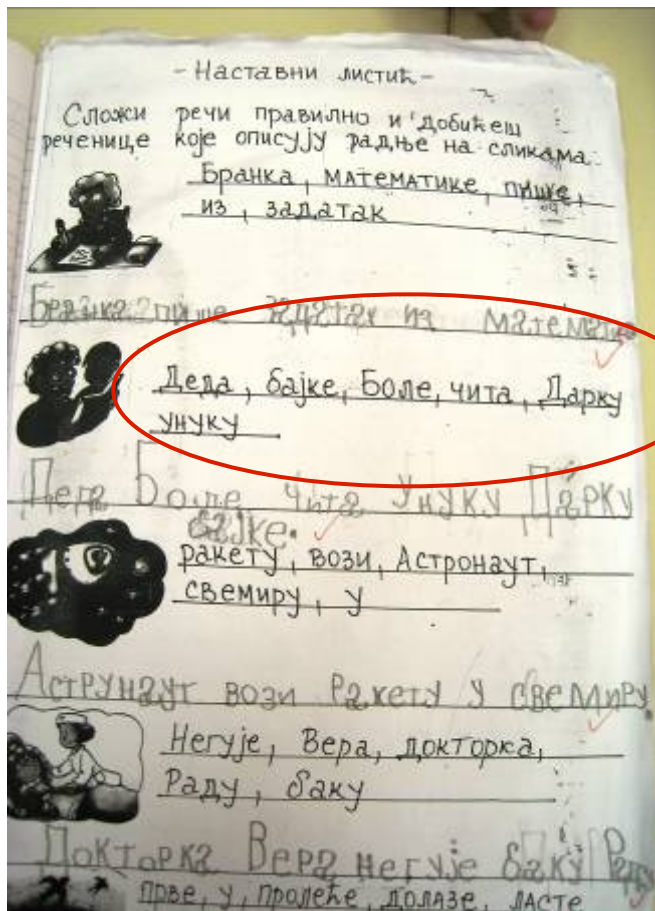 - Наставни листић -
Сложи речи правилно и добићеш
реченице које описују радње на сликама:
Бранка, математике, пише,
из, задатак
Бранка пише задатак из математи
Деда, бајке, Боле, чита, Дарку
унуку
Деда Боле чита унуку Дарку
бајке.
ракету, вози, Астронаут,
свемиру, у
Аструнаут вози ракету у свемиру.
Негује, Вера, докторка,
Раду, баку
Докторка Вера негује баку Раду
прве, у, пролеће, долазе, ласте